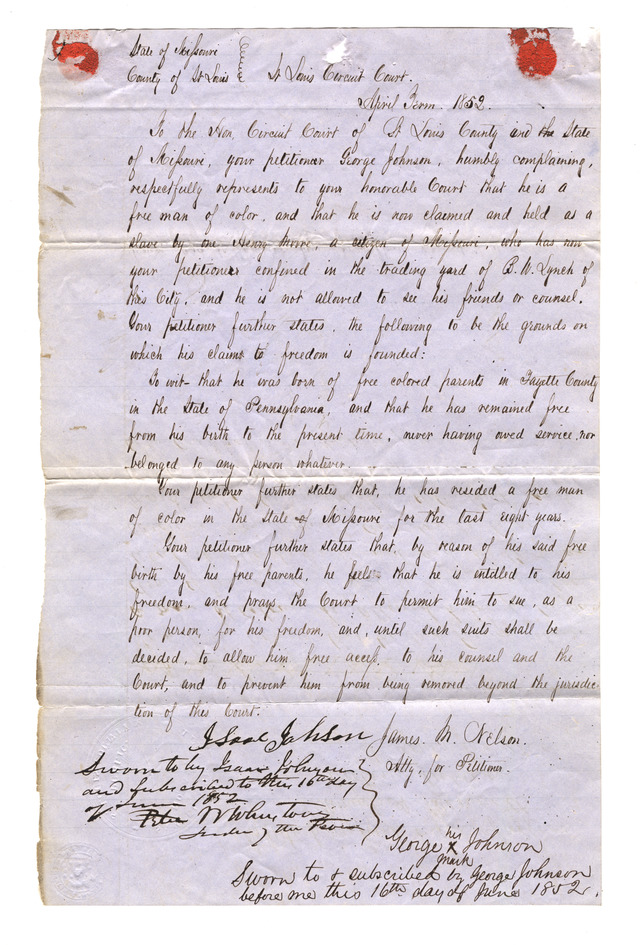 State of Missouri
County of St Louis St Louis Circuit Court.
April Term 1852.
To the Hon. Circuit Court of St Louis County and the State
of Missouri, your petitioner George Johnson, humbly complaining,
respectfully represents to your honorable Court that he is a
free man of color, and that he is now claimed and held as a
slave by one Henry Moore, a citizen of Missouri, who has now
your petitioner confined in the trading yard of B. W. Lynch of
this City, and he is not allowed to see his friends or counsel.
Your petitioner further states, the following to be the grounds on
which his claims to freedom is founded:
To wit- that he was born of free colored parents in Fayette County
in the State of Pennsylvania, and that he has remained free
from his birth to the present time, never having owed service, nor
belonged to any person whatever.
Your petitioner further states that, he has resided a free man
of color in the State of Missouri for the last eight years.
Your petitioner further states that, by reason of his said free
birth by his free parents, he feels that he is intitled to his
freedom, and prays the Court to permit him to sue, as a
poor person, for his freedom, and, until such suits shall be
decided, to allow him free access, to his counsel and the
Court, and to prevent him from being removed beyond the jurisdic-
tion of this Court.
Isaac Johnson James. M. Nelson.
Atty. for Petitioner.
Sworn to by Isaac Johnson
and subscribed to this 16th day
of June 1852
of the
George his Johnson
x
mark
Sworn to & subscribed by George Johnson
before me this 16th day of June 1852.